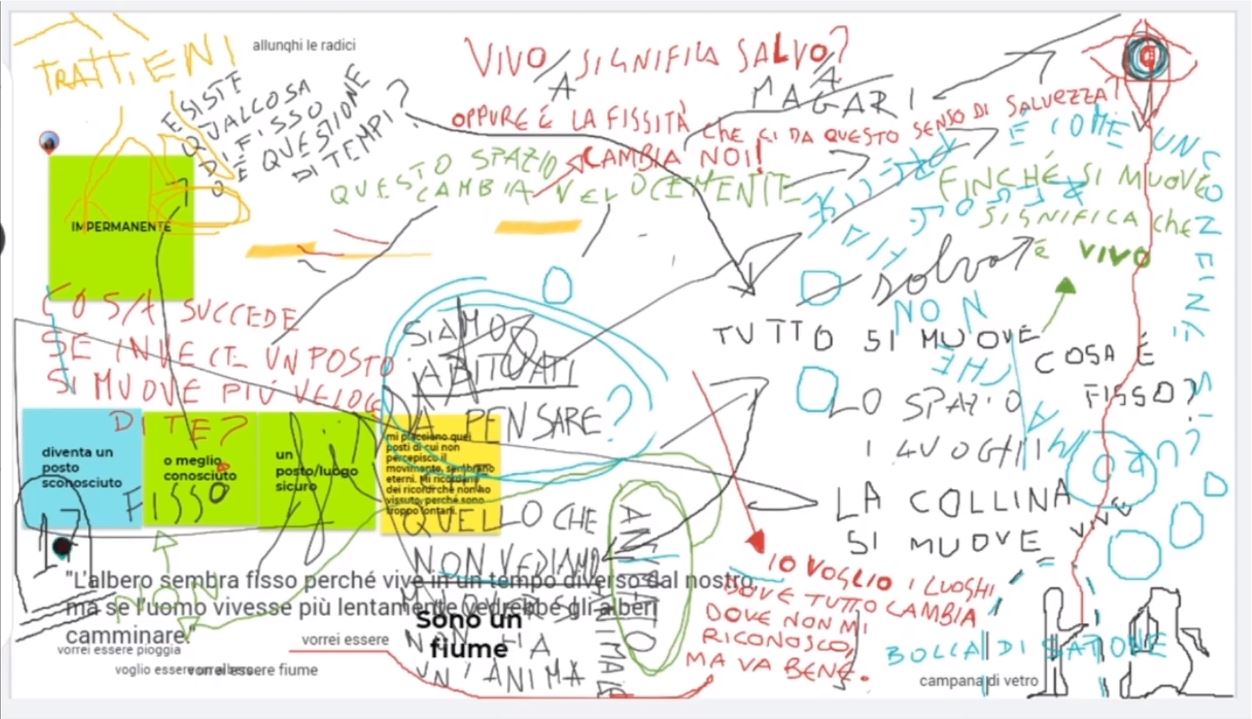 TRATTIENI
allunghi le radici
ESISTE
QUALCOSA
DI FISSO
O È QUESTIONE
DI TEMPI?
VIVO SIGNIFICA SALVO?
A
A
MAGARI
OPPURE È LA FISSITÀ che CI DA QUESTO SENSO DI SALVEZZA?
CAMBIA NOI!
QUESTO SPAZIO
CAMBIA VELOCEMENTE
È COME UN
FINCHÉ SI MUOVE
SIGNIFICA che
è VIVO
salva
IMPERMANENTE
COSA SUCCEDE
SE INVECE UN POSTO
SI MUOVE PIÙ VELOCE
DI TE?
SIAMO
ABITUATI
A PENSARE?
TUTTO SI MUOVE
NON
CHE
MA
COSA È
FISSO?
LO SPAZIO
I LUOGHI
LA COLLINA
SI MUOVE
VIVE
diventa un
posto
sconosciuto
o meglio
conosciuto
FISSO
un
posto/luogo
sicuro
mi piacciono quei
posti di cui non
percepisco il
movimento, sembrano
eterni. Mi ricordano
dei ricordi che non ho
vissuto, perché sono
troppo lontani.
QUELLO CHE
NON VEDIAMO
MUOVERSI
NON HA
UN'ANIMA
ANIMATO
INANIMATO
"L'albero sembra fisso perché vive in un tempo diverso dal nostro,
ma se l'uomo vivesse più lentamente vedrebbe gli alberi
camminare."
NON
Sono un
fiume
vorrei essere
vorrei essere pioggia
voglio essere un albero
vorrei essere fiume
IO VOGLIO I LUOGHI
DOVE TUTTO CAMBIA
DOVE NON MI
RICONOSCO,
MA VA BENE.
BOLLA DI SAPONE
campana di vetro